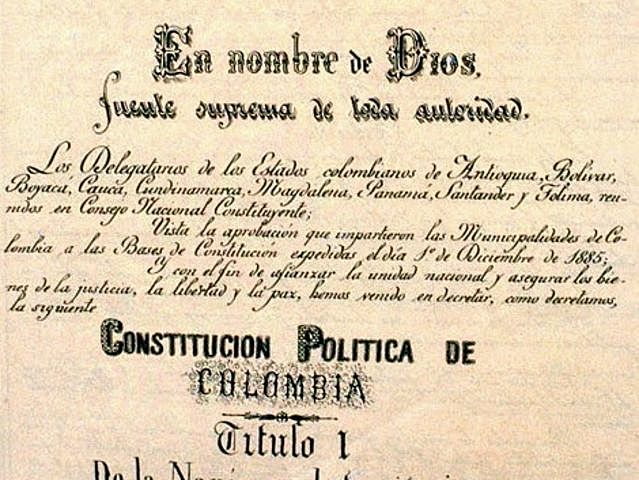 En nombre de Dios,
fuente suprema de toda autoridad.
Los Delegatarios de los Estados colombianos de Antioquia, Bolívar,
Boyacá, Cauca, Cundinamarca, Magdalena, Panamá, Santander y Tolima, reu-
nidos en Consejo Nacional Constituyente;
Vista la aprobación que impartieron las Municipalidades de Co-
lombia a las Bases de Constitución expedidas el día 1º de Diciembre de 1885;
y con el fin de afianzar la unidad nacional y asegurar los bie-
nes de la justicia, la libertad y la paz, hemos venido en decretar, como decretamos,
la siguiente
CONSTITUCION POLITICA DE
COLOMBIA
Titulo I
De la